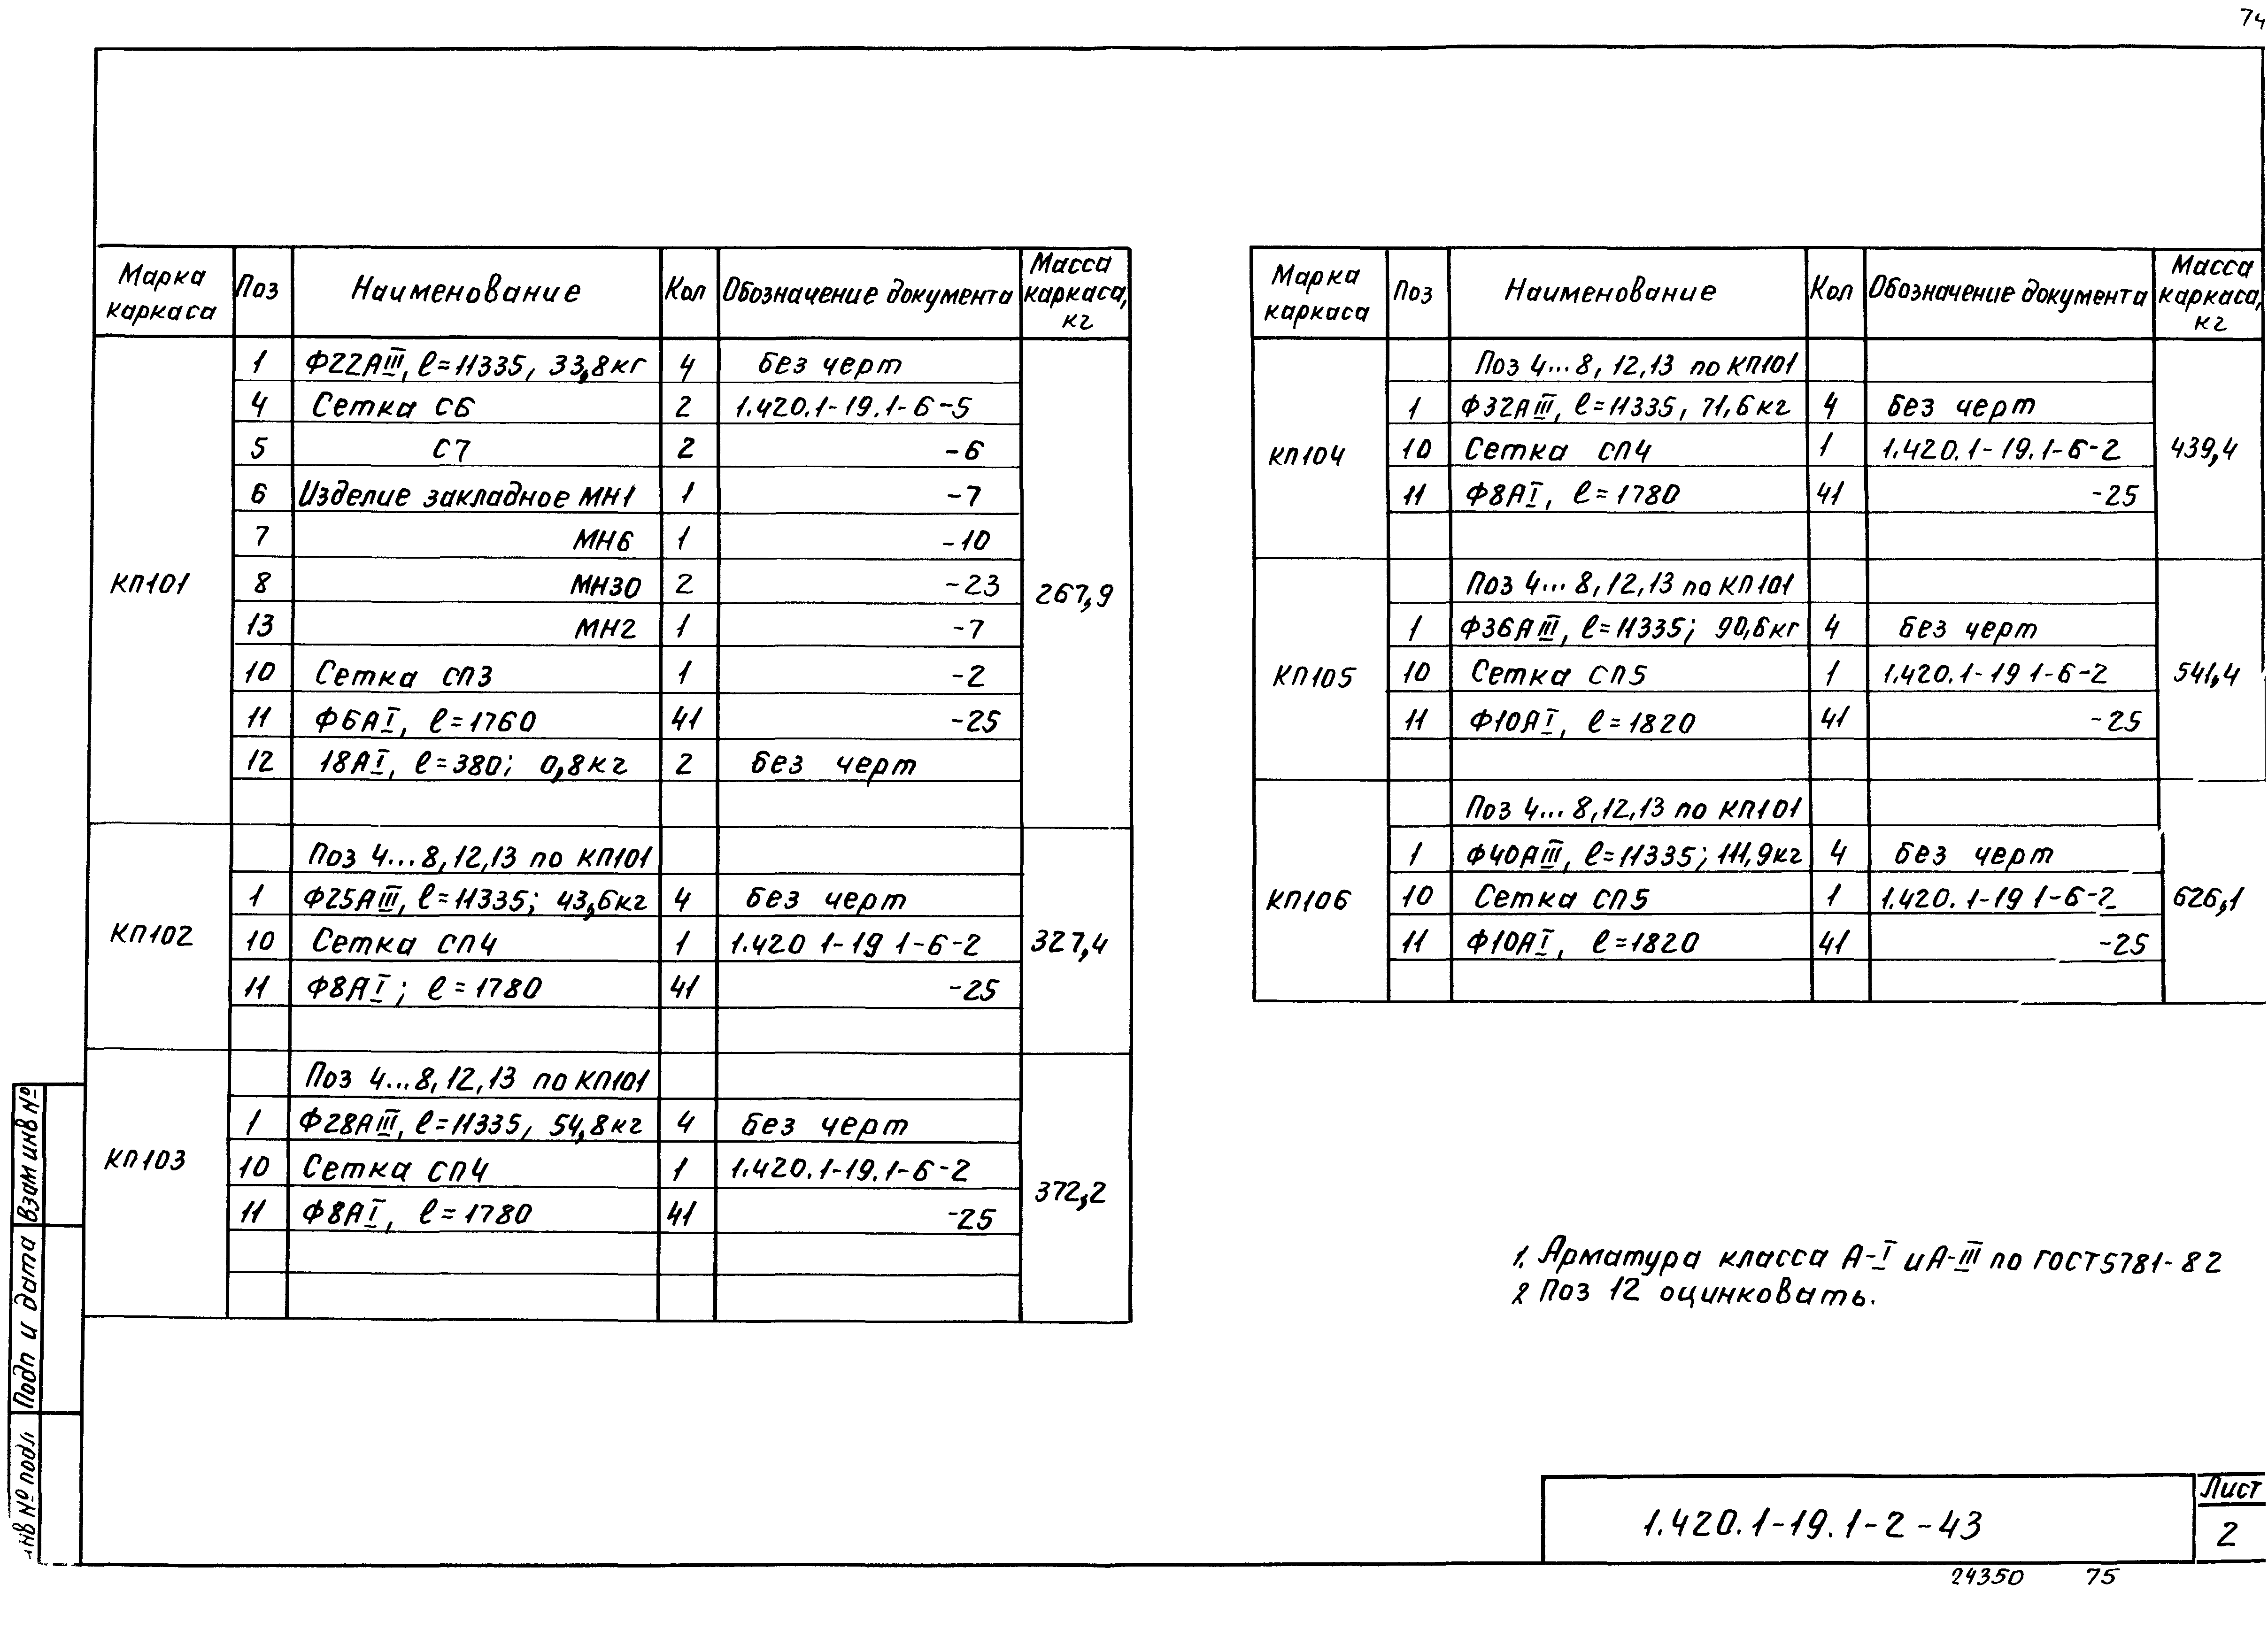 74
Марка каркаса | Поз | Наименование | Кол | Обозначение документа | Масса каркаса, кг
КП101
1 | Ф22АIII, ℓ=11335, 33,8кг | 4 | Без черт
4 | Сетка С6 | 2 | 1.420.1-19.1-6-5
5 | С7 | 2 | -6
6 | Изделие закладное МН1 | 1 | -7
7 | МН6 | 1 | -10
8 | МН30 | 2 | -23
13 | МН2 | 1 | -7
10 | Сетка СП3 | 1 | -2
11 | Ф6АI, ℓ=1760 | 41 | -25
12 | 18АI, ℓ=380; 0,8кг | 2 | Без черт
267,9
КП102
Поз 4...8,12,13 по КП101
1 | Ф25АIII, ℓ=11335; 43,6кг | 4 | Без черт
10 | Сетка СП4 | 1 | 1.420 1-19 1-6-2
11 | Ф8АI; ℓ=1780 | 41 | -25
327,4
КП103
Поз 4...8,12,13 по КП101
1 | Ф28АIII, ℓ=11335, 54,8кг | 4 | Без черт
10 | Сетка СП4 | 1 | 1.420.1-19.1-6-2
11 | Ф8АI, ℓ=1780 | 41 | -25
372,2
Марка каркаса | Поз | Наименование | Кол | Обозначение документа | Масса каркаса, кг
КП104
Поз 4...8,12,13 по КП101
1 | Ф32АIII, ℓ=11335, 71,6кг | 4 | Без черт
10 | Сетка СП4 | 1 | 1.420.1-19.1-6-2
11 | Ф8АI, ℓ=1780 | 41 | -25
439,4
КП105
Поз 4...8,12,13 по КП101
1 | Ф36АIII, ℓ=11335; 90,6кг | 4 | Без черт
10 | Сетка СП5 | 1 | 1.420.1-19 1-6-2
11 | Ф10АI, ℓ=1820 | 41 | -25
541,4
КП106
Поз 4...8,12,13 по КП101
1 | Ф40АIII, ℓ=11335; 111,9кг | 4 | Без черт
10 | Сетка СП5 | 1 | 1.420.1-19 1-6-2
11 | Ф10АI, ℓ=1820 | 41 | -25
626,1
1. Арматура класса А-I и А-III по ГОСТ5781-82
2 Поз 12 оцинковать.
Взам инв №
Подп и дата
инв № подл
1.420.1-19.1-2-43
Лист
2
24350 75